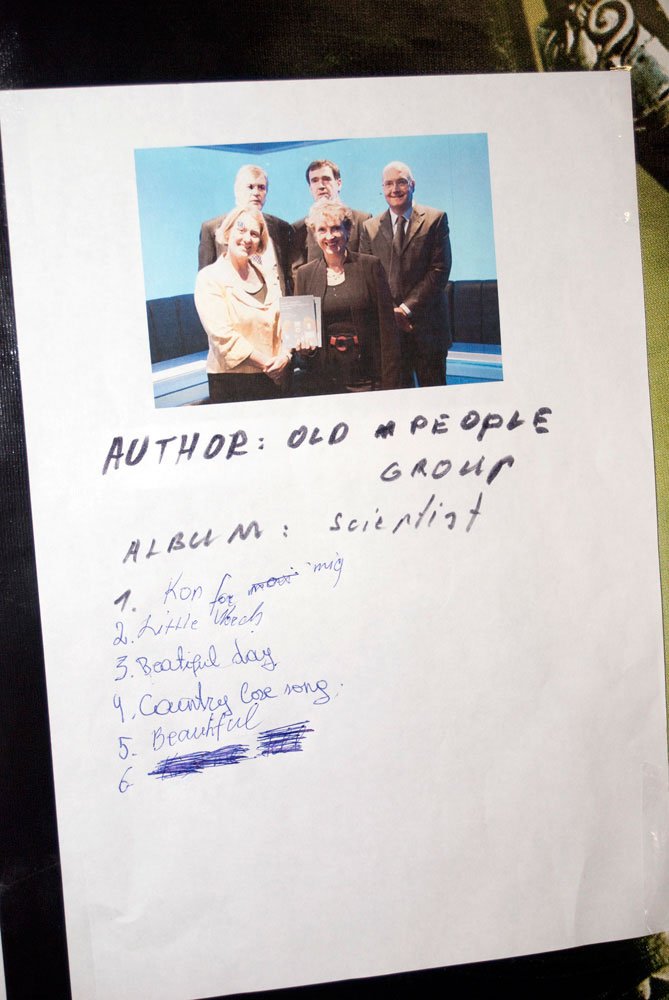 AUTHOR: OLD PEOPLE
GROUP
ALBUM: Scientist
1. Kon for mig
2. Little
3. Beatiful day
4. Country lose song.
5. Beautiful
6